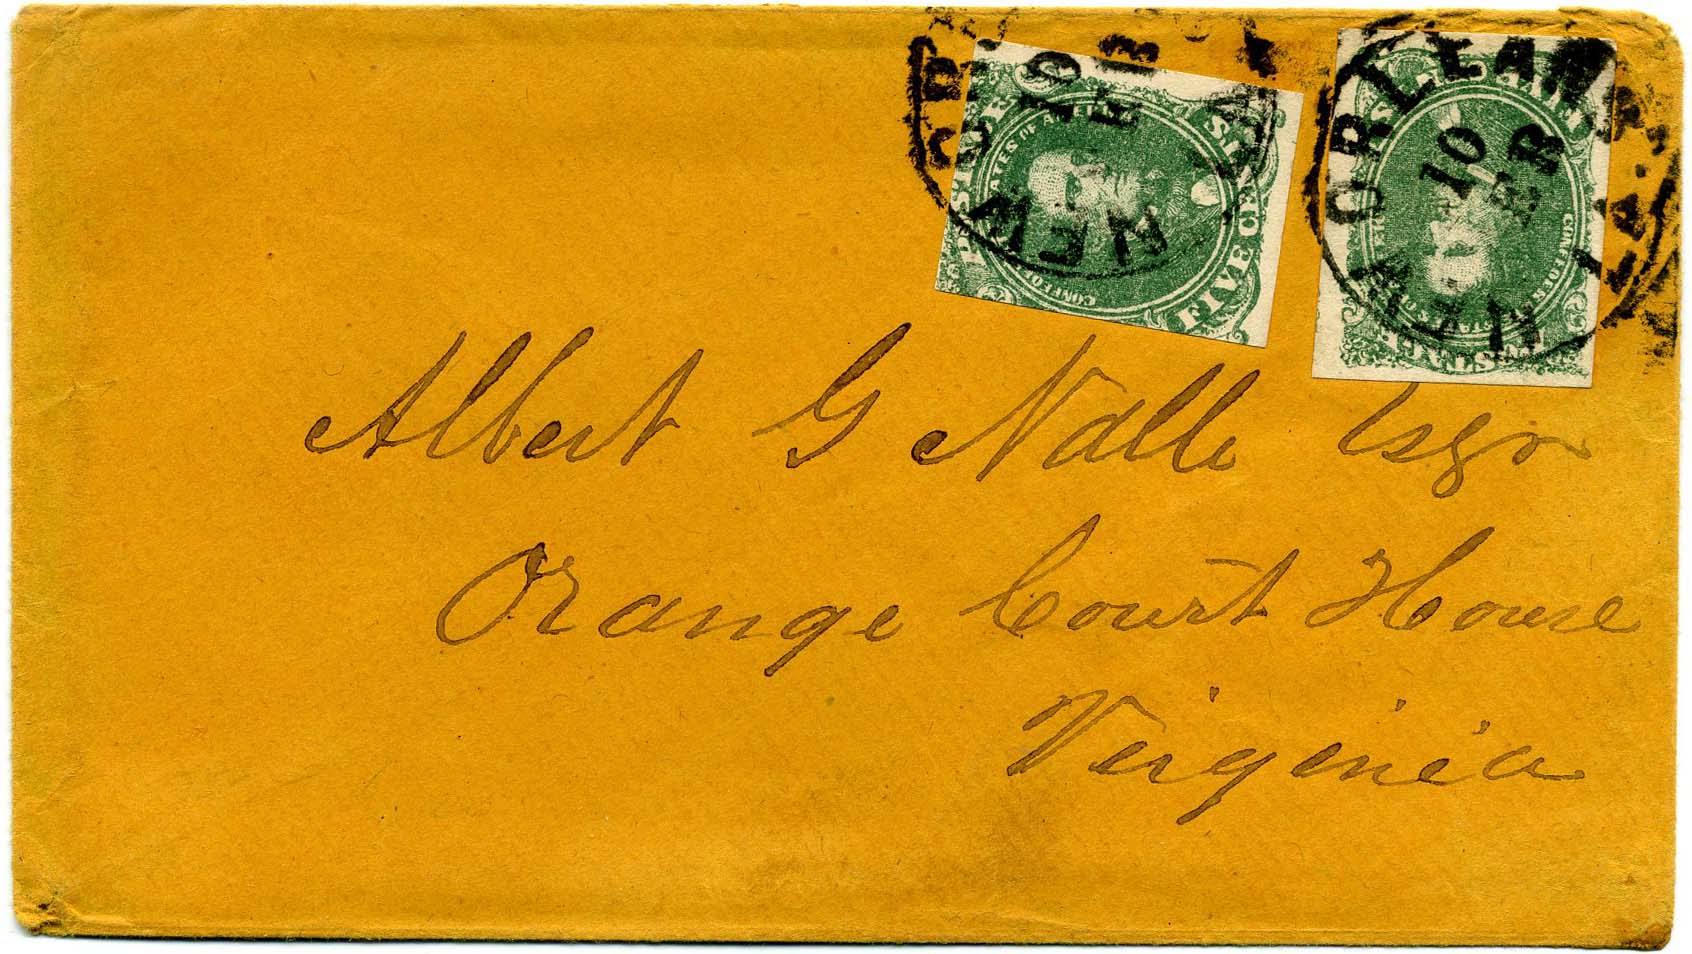 NEW ORLEANS LA.
10
FEB
FIVE CENTS
NEW ORLEANS LA.
10
FEB
Albert G Nalle Esqr
Orange Court House
Virginia